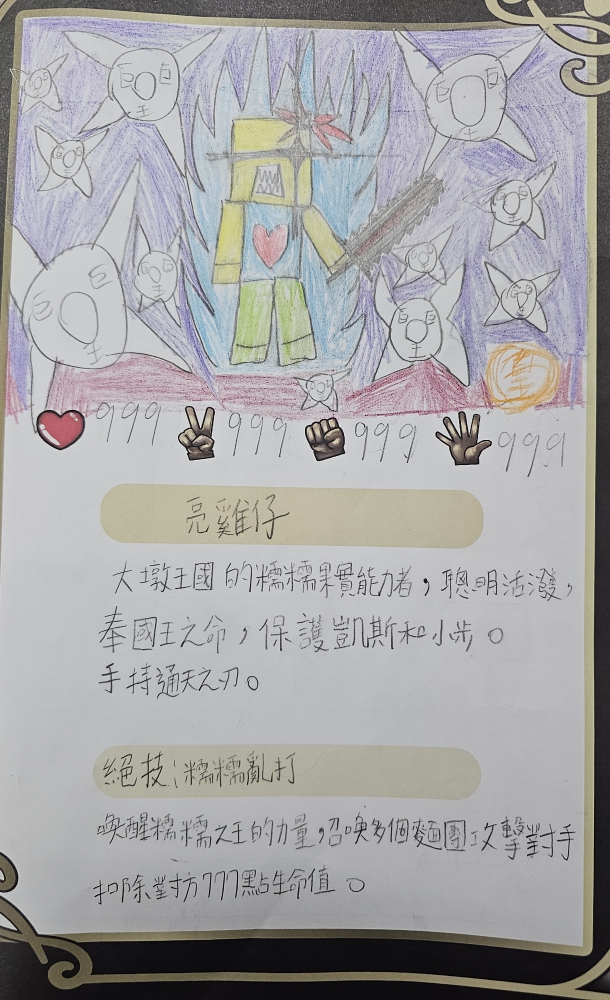 王
王
王
❤️999 ✌️999 ✊999 🖐️999
亮雞仔
大墩王國的糯糯果實能力者，聰明活潑，
奉國王之命，保護凱斯和小步。
手持通天之刃。
絕技：糯糯亂打
喚醒糯糯之王的力量，召喚多個麵團攻擊對手
扣除對方777點生命值。